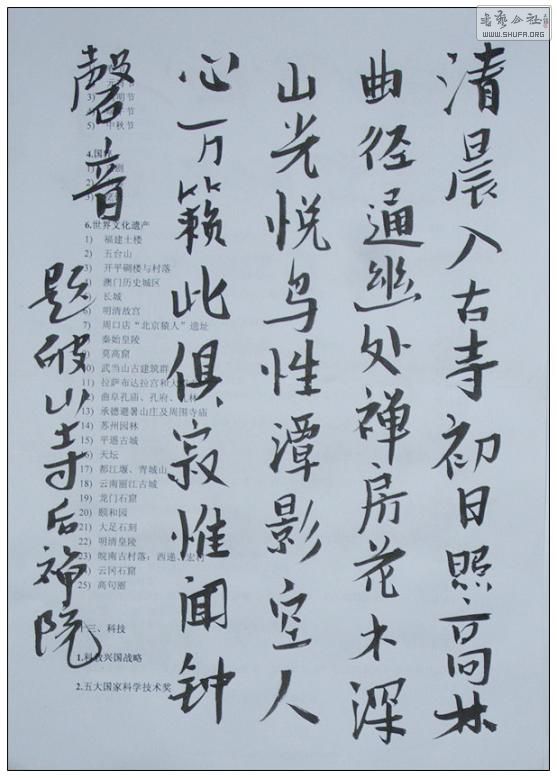 書藝公社
WWW.SHUFA.ORG
清晨入古寺初日照高林
曲径通幽处禅房花木深
山光悦鸟性潭影空人
心万籁此俱寂惟闻钟
磬音
题破山寺后禅院
3) 明节
5) 中秋节
4.国
1) 剧
2)
3)
6.世界文化遗产
1) 福建土楼
2) 五台山
3) 开平碉楼与村落
澳门历史城区
长城
6) 明清故宫
7) 周口店“北京猿人”遗址
秦始皇陵
9) 莫高窟
10) 武当山古建筑群
11) 拉萨布达拉宫和大
12) 曲阜孔庙、孔府、孔林
13) 承德避暑山庄及周围寺庙
14) 苏州园林
15) 平遥古城
16) 天坛
17) 都江堰、青城山
18) 云南丽江古城
19) 龙门石窟
20) 颐和园
21) 大足石刻
22) 明清皇陵
23) 皖南古村落：西递、宏村
云冈石窟
25) 高句丽
十三、科技
1.科教兴国战略
2.五大国家科学技术奖